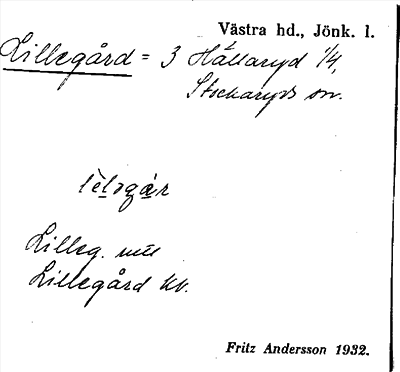 Västra hd., Jönk. l.
Lillegård = 3 Hällaryd 1/4,
Stockaryds sn.
Lilleg. mtl
Lillegård kv.
Fritz Andersson 1932.